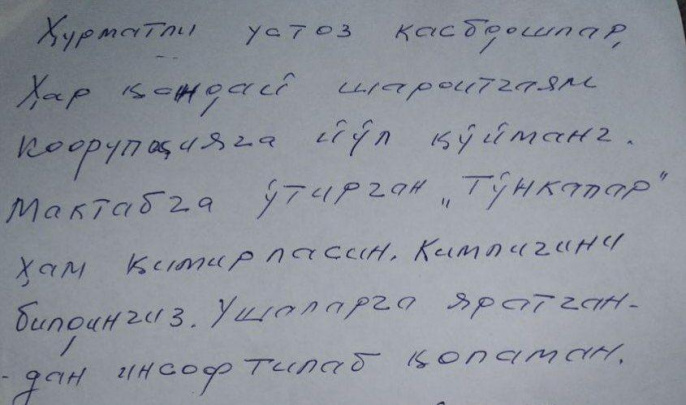 Ҳурматли устоз касбдошлар,
Ҳар қандай шароитгаям
коорупцияга йўл қўйманг.
Мактабга ўтирган „Тўнкалар"
ҳам қимирласин. Кимлигини
билдингиз. Ушаларга яратган-
- дан инсоф тилаб қоламан.